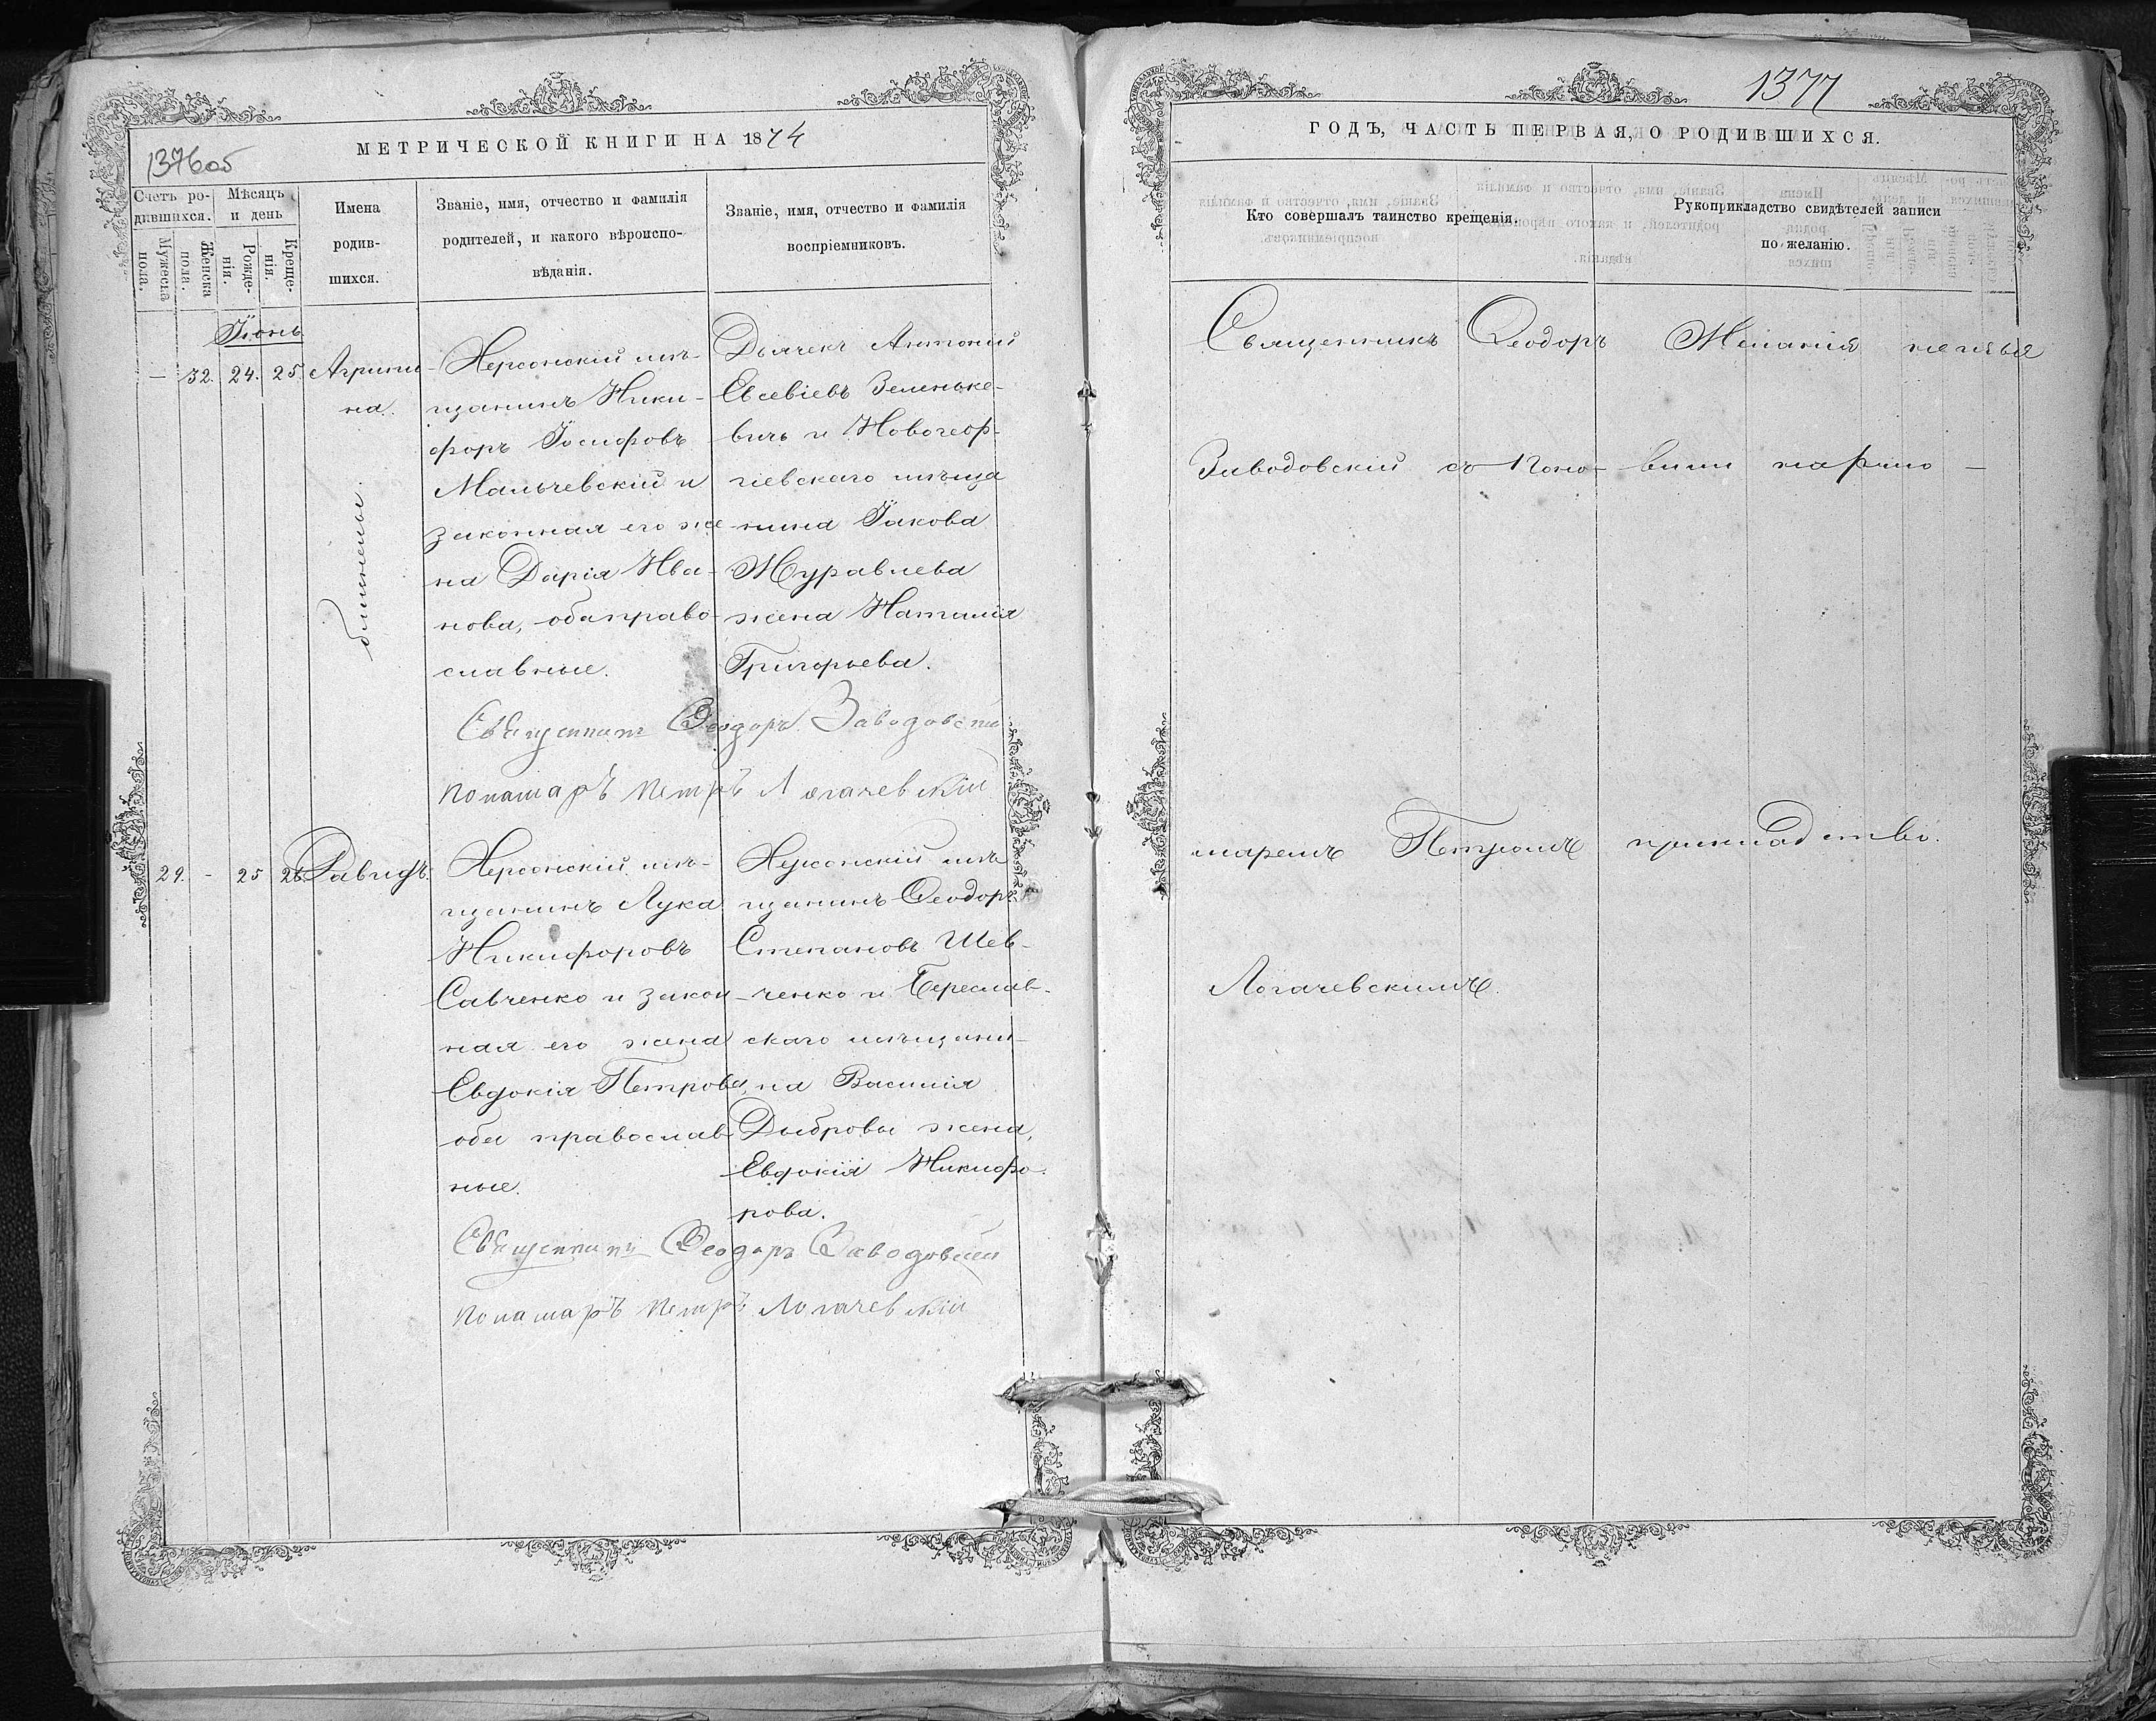 МЕТРИЧЕСКОЙ КНИГИ НА 1874
1376об
Счетъ ро-
дившихся.
Мужеска
пола.
Женска
пола.
Мѣсяцъ
и день
Рожде-
нія.
Креще-
нія.
Имена
родив-
шихся.
Званіе, имя, отчество и фамилія
родителей, и какого вѣроиспо-
вѣданія.
Званіе, имя, отчество и фамилія
воспріемниковъ.
Іюнь
— 32. 24. 25. Агрипи-
на.
близнецы.
Херсонскій мѣ-
щанинъ Ники-
форъ Іосифовъ
Мальчевскій и
законная его же-
на Дарія Ива-
нова, оба право-
славные.
Дьячекъ Антоній
Евсевіевъ Зеленьке-
вичъ и Новогеор-
гіевскаго мѣща
нина Іакова
Журавлева
жена Наталія
Григорьева.
Священникъ Ѳеодоръ Заводовскій
Понамаръ Петръ Логачевскій
29. - 25 26 Давидъ.
Херсонскій мѣ-
щанинъ Лука
Никифоровъ
Савченко и закон-
ная его жена
Евдокія Петрова,
оба православ-
ные.
Херсонскій мѣ
щанинъ Ѳеодоръ
Степановъ Шев-
ченко и Береслав-
скаго мѣщани-
на Василія
Дибровы жена,
Евдокія Никифо-
рова.
Священникъ Ѳеодоръ Заводовскій
Понамаръ Петръ Логачевскій
1377
ГОДЪ, ЧАСТЬ ПЕРВАЯ, О РОДИВШИХСЯ.
Кто совершалъ таинство крещенія.
Рукоприкладство свидѣтелей записи
по желанію.
Священникъ Ѳеодоръ
Заводовскій съ Поно-
маремъ Петромъ
Логачевскимъ.
Желанія не изъя-
вили на руко-
прикладство.